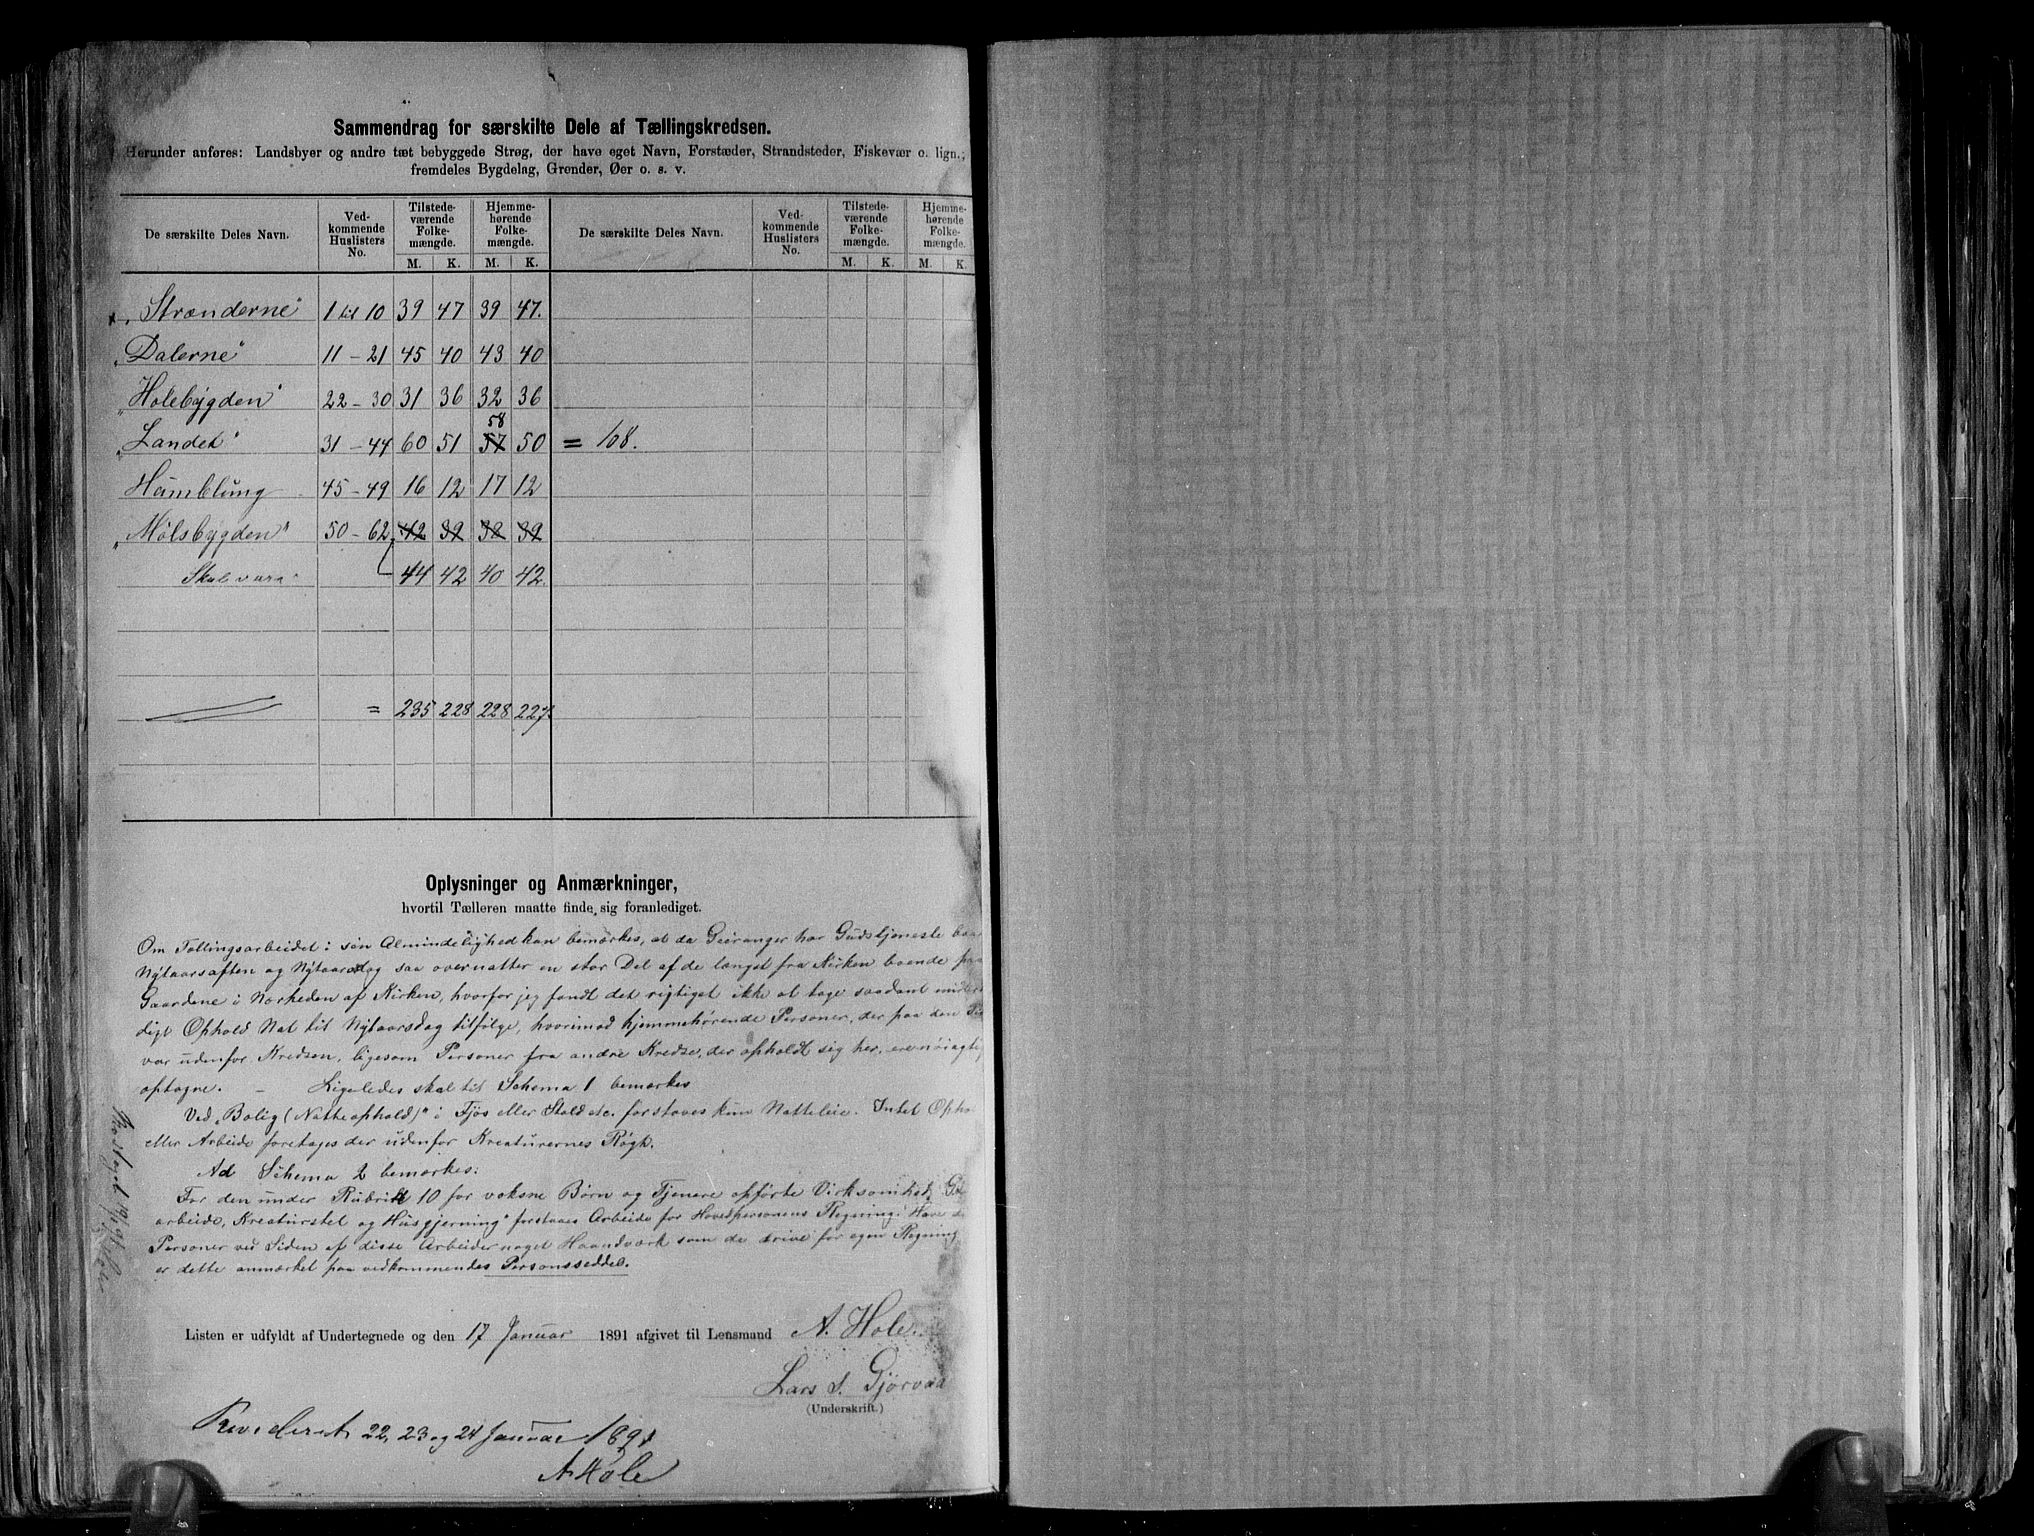 Sammendrag for særskilte Dele af Tællingskredsen.
Herunder anføres: Landsbyer og andre tæt bebyggede Strøg, der have eget Navn, Forstæder, Strandsteder, Fiskevær o. lign.;
fremdeles Bygdelag, Grender, Øer o. s. v.
De særskilte Deles Navn. Ved-kommende Huslisters No. Tilstede-værende Folke-mængde. Hjemme-hørende Folke-mængde. De særskilte Deles Navn. Ved-kommende Huslisters No. Tilstede-værende Folke-mængde. Hjemme-hørende Folke-mængde.
M. K. M. K. M. K. M. K.
„Strænderne" 1 til 10 39 47 39 47.
„Dalerne" 11 - 21 45 40 43 40
„Holebygden" 22 - 30 31 36 32 36
58
„Landet" 31 - 44 60 51 57 50 = 108.
Humblung 45 - 49 16 12 17 12
„Mølsbygden" 50 - 62 42 39 38 39
Skal være 44 42 40 42.
= 235 228 228 227
Oplysninger og Anmærkninger,
hvortil Tælleren maatte finde sig foranlediget.
Om Tællingsarbeidet i sin Almindelighed kan bemærkes, at da Geiranger har Gudstjeneste
Nytaarsaften og Nytaarsdag saa overnatter en stor Del af de længst fra Kirken boende
Gaardene i Nærheden af Kirken, hvorfor jeg fandt det rigtigst ikke at tage saadant
Ophold Nat til Nytaarsdag tilfølge, hvorimod hjemmehørende Personer, der paa den
var udenfor Kredsen, ligesom Personer fra andre Kredse, der opholdt sig her, ere
optagne. — Ligeledes skal til Schema 1 bemærkes
Ved „Bolig (Natteophold)" i Fjøs eller Stald etc. forstaaes kun Natteleie. Intet
eller Arbeide foretages der udenfor Kreaturernes Røgt.
Ad Schema 2 bemærkes:
For den under Rubrik 10 for voksne Børn og Tjenere opførte Virksomhed
arbeide, Kreaturstel og Husgjerning" forstaaes Arbeide for Hovedpersonens Regning. Have
Personer ved Siden af disse Arbeider noget Haandværk som de drive for egen Regning
er dette anmærket paa vedkommendes Personsseddel.
Listen er udfyldt af Undertegnede og den 17 Januar 1891 afgivet til Lensmand A. Hole.
Lars S. Gjørvad
(Underskrift.)
Revideret 22, 23 og 24 Januar 1891
A Hole